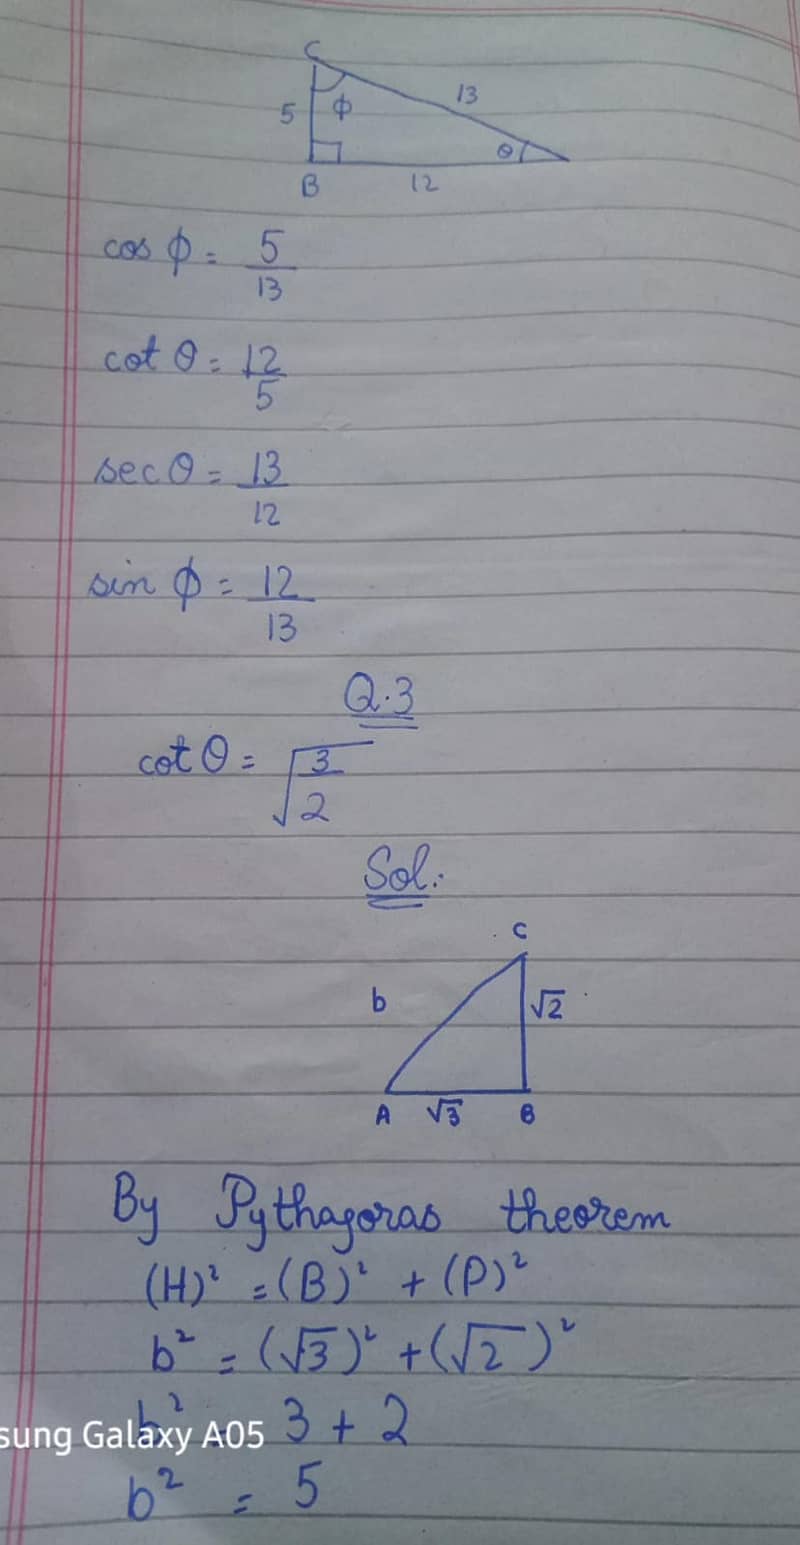 C
5 ϕ 13
θ
B 12
cos ϕ = 5/13
cot θ = 12/5
sec θ = 13/12
sin ϕ = 12/13
Q.3
cot θ = √(3/2)
Sol:
C
b √2
A √3 B
By Pythagoras theorem
(H)² = (B)² + (P)²
b² = (√3)² + (√2)²
b² = 3 + 2
sung Galaxy A05
b² = 5